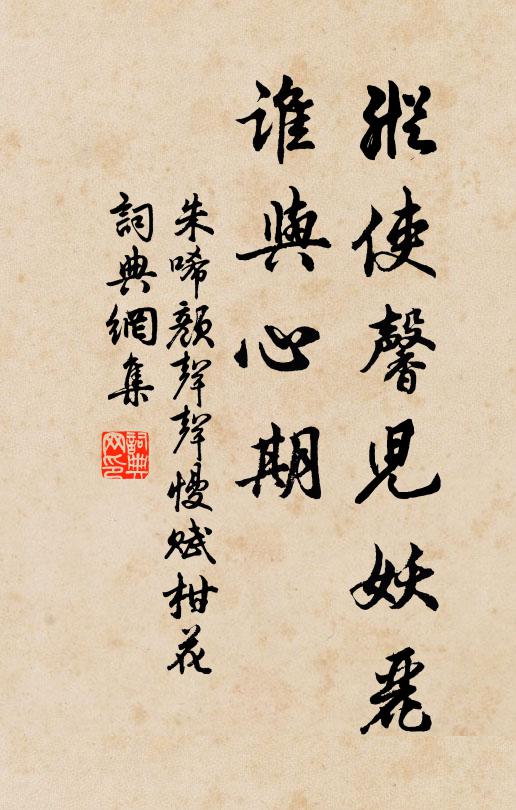 縱使馨兒妖麗
誰與心期
朱唏顏聲聲慢賦柑花
詞典網集
詞典網印